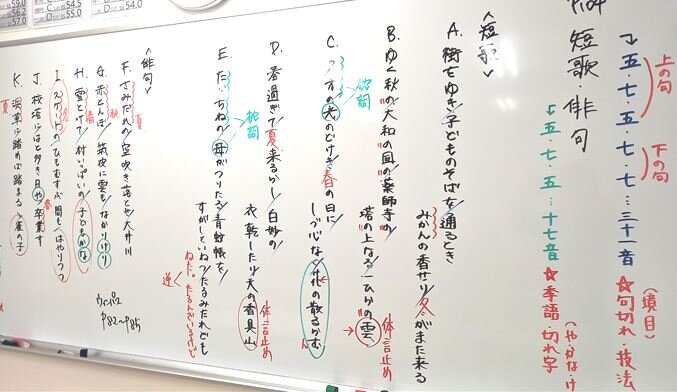 短歌・俳句
五・七・五・七・七…三十一音
上の句
下の句
☆句切れ・技法
(境目)
五・七・五…十七音
☆季語・切れ字
(や・かな・け
<短歌>
A. 街をゆき/子どものそばを通るとき
みかんの香せり/冬がまた来る
B. ゆく秋の大和の国の薬師寺の
塔の上なる/一ひらの雲
体言止め
C.
枕詞
光のどけき春の日に
しづ心なく花の散るらむ
D. 春過ぎて夏来るらし/白妙の
衣乾したり天の香具山
体言止め
E. たらちねの母がつりたる青蚊帳を
枕詞
すがしといねつ/たるみたれども
ねた。たるんでいるけど
逆
<俳句>
F. さみだれの空吹き落とせ大井川
夏
G. 赤とんぼ筑波に雲もなかりけり
秋
H. 雪とけて村いっぱいの子どもかな
春
I. スケートのひもむすぶ間もはやりつつ
冬
J. 校塔に鳩多き日や卒業す
春
K.
踏めば踏まるる雀の子
夏
P82〜P85